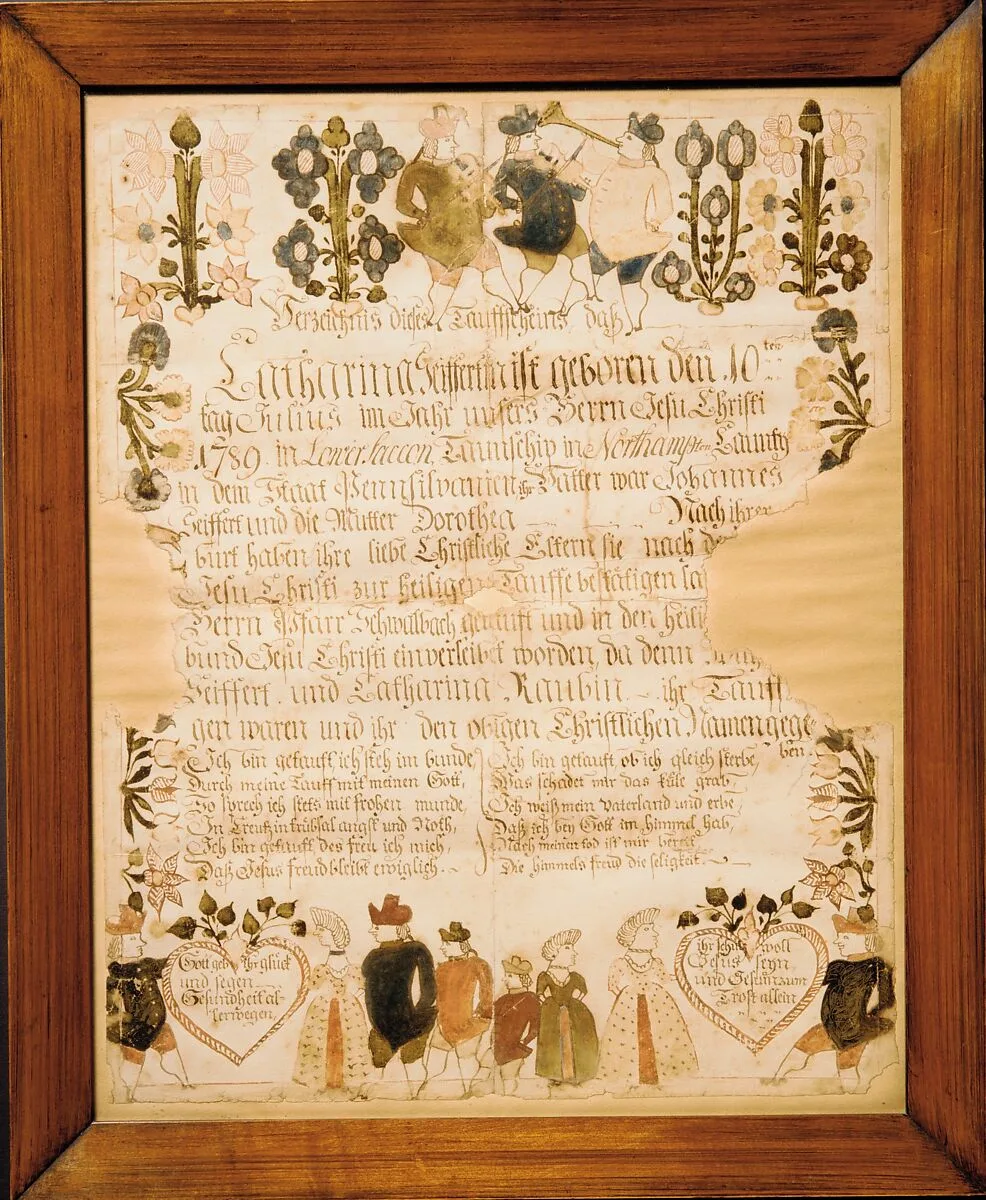 Verzeichnis dieses Tauffscheins, daß
Catharina Seiffertin ist geboren den 10ten
tag Julius im Jahr unsers Herrn Jesu Christi
1789. in Lower Saccon Taunschip in Northampton Caunty
in dem Staat Pennsilvanien ihr Vatter war Johannes
Seiffert und die Mutter Dorothea Nach ihrer
burt haben ihre liebe Christliche Eltern sie nach
Jesu Christi zur heiligen Tauffe bestätigen
Herrn Pfarr Schwalbach getauft und in den heili
bund Jesu Christi einverleibet worden, da denn
Seiffert. und Catharina Raubin ihr Tauff
gen waren und ihr den obigen Christlichen Namen gege-
ben.
Ich bin getauft ich steh im bunde,
Durch meine Tauff mit meinen Gott,
So sprech ich stets mit frohen munde,
In Creutz in trübsal angst und Noth,
Ich bin getauft des freu ich mich,
Daß Jesus freud bleibt ewiglich.
Ich bin getauft ob ich gleich sterbe,
Was schadet mir das küle grab,
Ich weiß mein vaterland und erbe,
Daß ich bey Gott im himmel hab,
Nach meinen tod ist mir bereit
Die himmels freud die seligkeit.
Gott geb ihr glück
und segen
Gesundheit al-
lerwegen,
ihr schutz woll
Jesus seyn
und Gestirn zum
Trost allein